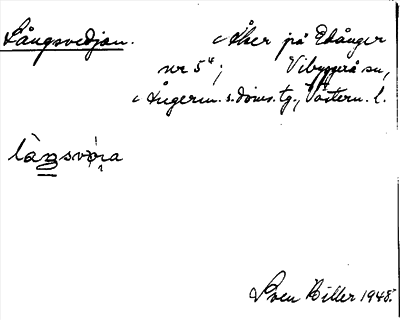 Långsvedjan. Åker på Edånger
nr 5⁴; Vibyggerå sn,
Ångerm. s. doms. tg., Västern. l.
Sven Biller 1948.